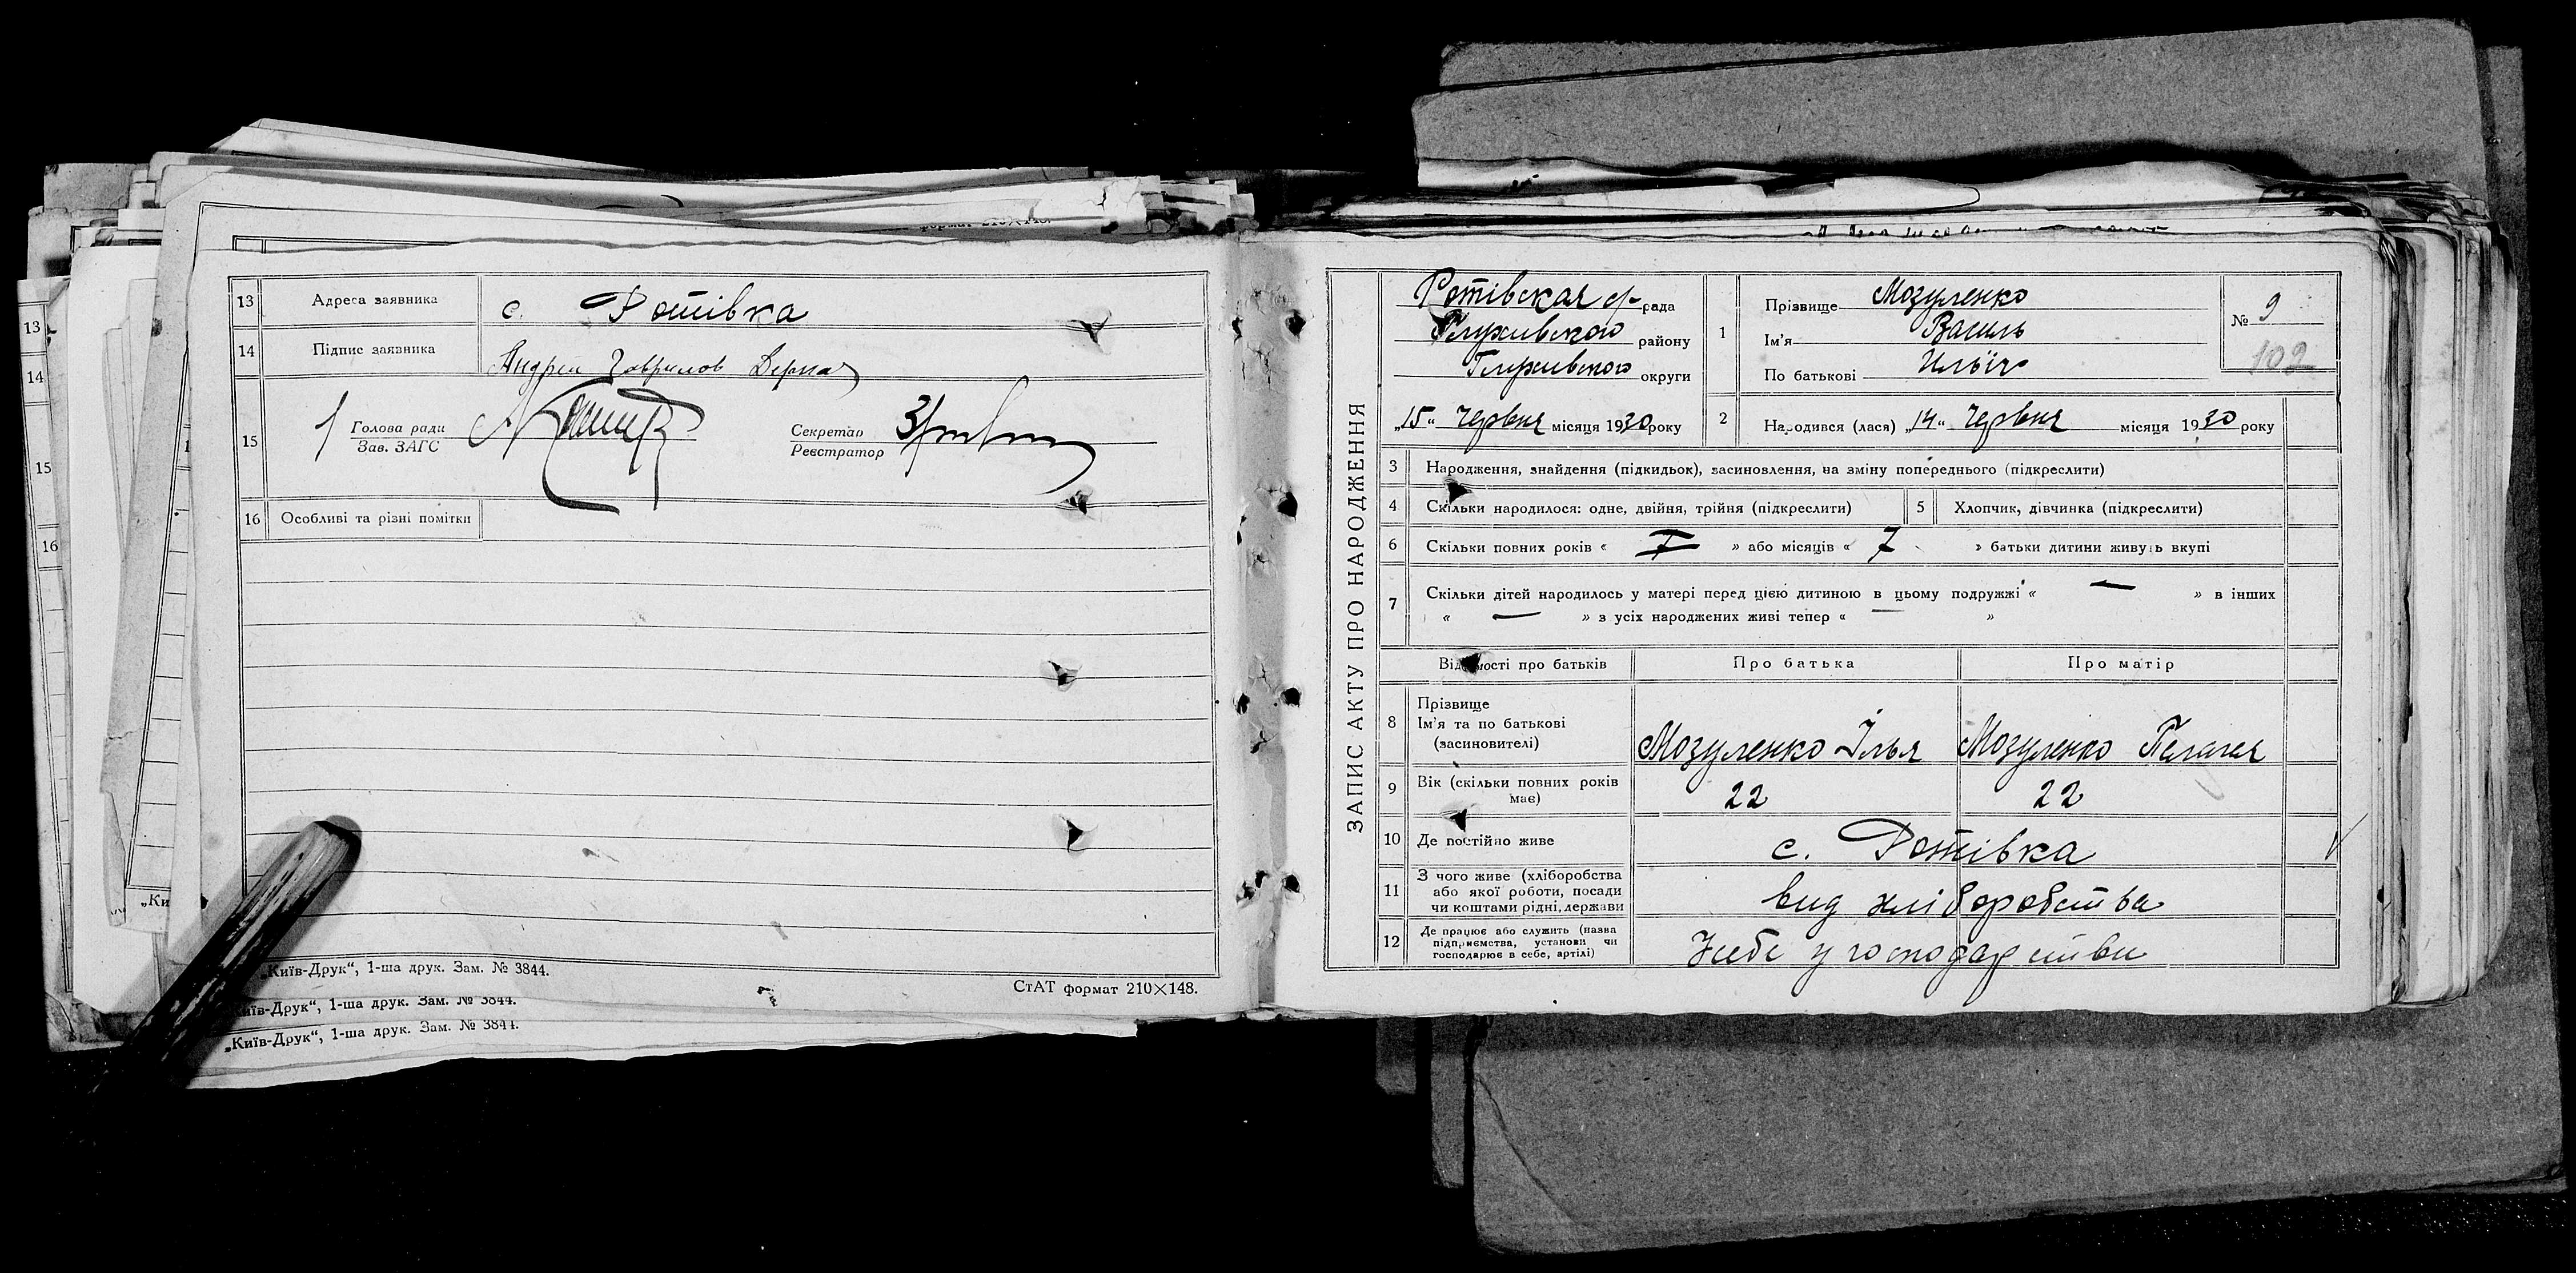 13 Адреса заявника с. Ротівка
14 Підпис заявника Андрей Гаврилов
15 Голова ради Секретар
Зав. ЗАГС Реєстратор
16 Особливі та різні помітки
„Київ-Друк“, 1-ша друк. Зам. № 3844.
СтАТ формат 210×148.
„Київ-Друк“, 1-ша друк. Зам. № 3844.
„Київ-Друк“, 1-ша друк. Зам. № 3844.
13
14
15
16
„Ки
формат 210×148.
ЗАПИС АКТУ ПРО НАРОДЖЕННЯ
Ротівская с/рада
Глухивского району
Глухивского округи
„15“ червня місяця 1930 року
1 Прізвище Мозуленко
Ім'я Василь
По батькові Ильїч
№ 9
102
2 Народився (лася) „14“ червня місяця 1930 року
3 Народження, знайдення (підкидьок), засиновлення, на зміну попереднього (підкреслити)
4 Скільки народилося: одне, двійня, трійня (підкреслити) 5 Хлопчик, дівчинка (підкреслити)
6 Скільки повних років « » або місяців « 7 » батьки дитини живуть вкупі
7 Скільки дітей народилось у матері перед цією дитиною в цьому подружжі « — » в інших
« — » з усіх народжених живі тепер « — »
Відомості про батьків Про батька Про матір
8 Прізвище
Ім'я та по батькові
(засиновителі) Мозуленко Ілья Мозуленко Пелагея
9 Вік (скільки повних років
має) 22 22
10 Де постійно живе с. Ротівка
11 З чого живе (хліборобства
або якої роботи, посади
чи коштами рідні, держави вид хліборобства
12 Де працює або служить (назва
підприємства, установи чи
господарює в себе, артілі) У себе у господарстви